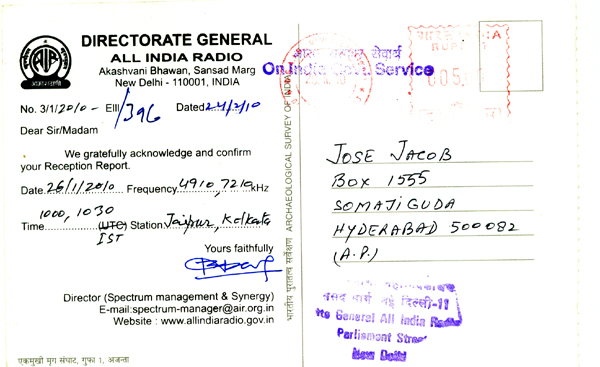 DIRECTORATE GENERAL
ALL INDIA RADIO
Akashvani Bhawan, Sansad Marg
New Delhi - 110001, INDIA
No. 3/1/2010 - EIII/396 Dated 24/2/10
Dear Sir/Madam
We gratefully acknowledge and confirm
your Reception Report.
Date 26/1/2010 Frequency 4910, 7210 kHz
1000, 1030
Time (UTC) Station Jaipur, Kolkata
IST
Yours faithfully
Director (Spectrum management & Synergy)
E-mail:spectrum-manager@air.org.in
Website : www.allindiaradio.gov.in
एकमुखी मृग संघाट, गुफा 1, अजन्ता
भारतीय पुरातत्व सर्वेक्षण ARCHAEOLOGICAL SURVEY OF INDIA
सेवार्थ
On India Govt. Service
INDIA
005
JOSE JACOB
BOX 1555
SOMAJIGUDA
HYDERABAD 500082
(A.P.)
नई दिल्ली-11
General All India Radio
Parliament Street
New Delhi